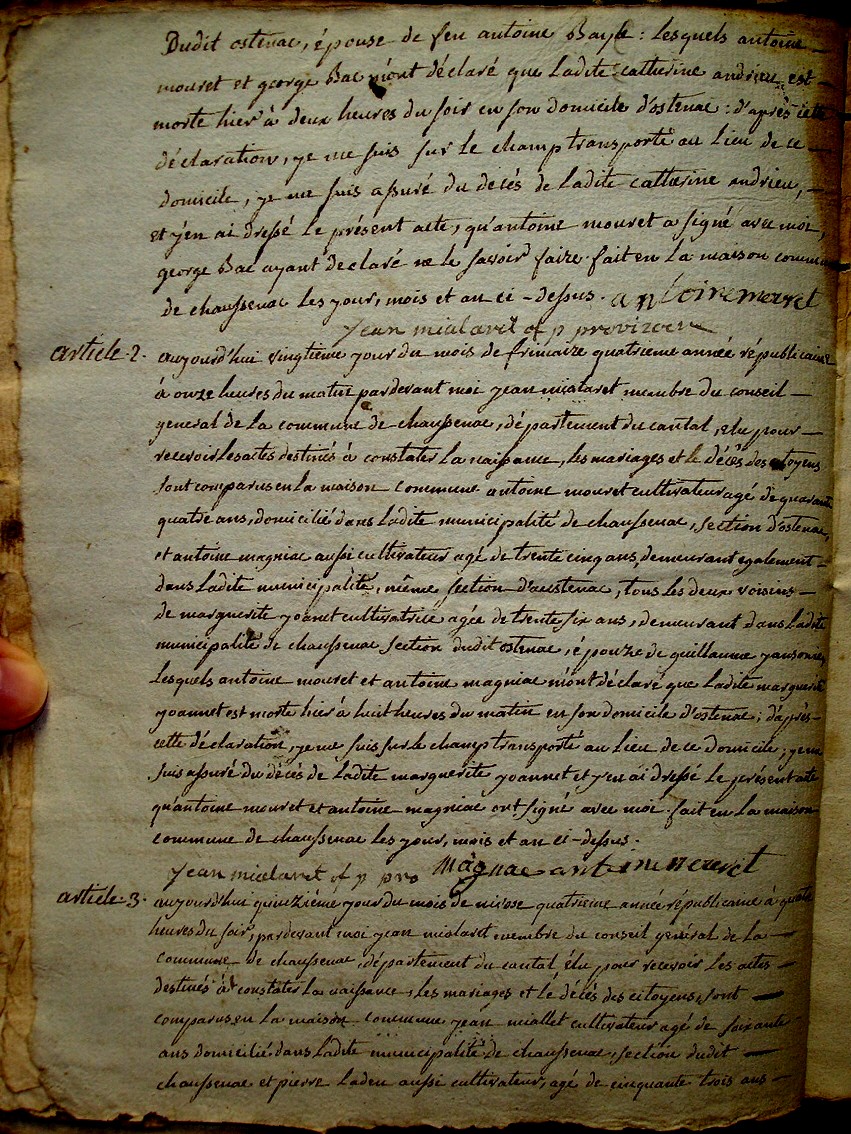 Dudit ostenac, épouse de feu antoine Bayle : lesquels antoine
mouret et george Bac m'ont déclaré que ladite catherine andrieu est
morte hier à deux heures du soir en son domicile d'ostenac : d'après cette
déclaration, je me suis sur le champ transporté au lieu de ce
domicile, je me suis assuré du décés de ladite catherine andrieu,
et j'en ai dressé le présent acte, qu'antoine mouret a signé avec moi,
george Bac ayant déclaré ne le savoir faire. fait en la maison commune
de chaussenac les jour, mois et an ci-dessus. antoire mouret
jean mialaret of p
article 2. aujourd'hui vingtième jour du mois de frimaire quatrieme année républicaine
à onze heures du matin pardevant moi jean mialaret membre du conseil
general de la commune de chaussenac, département du cantal, elu pour
recevoir les actes destinés à constater la naissance, les mariages et le décès des citoyens
sont comparus en la maison commune antoine mouret cultivateur agé de quarante
quatre ans, domicilié dans ladite municipalité de chaussenac, section d'ostenac,
et antoine magniac aussi cultivateur agé de trente cinq ans, demeurant également
dans ladite municipalité, même section d'austenac, tous les deux voisins
de marguerite joanet cultivatrice agée de trente six ans, demeurant dans ladite
municipalité de chaussenac section dudit ostenac, épouze de guillaume
lesquels antoine mouret et antoine magniac m'ont déclaré que ladite marguerite
joannet est morte hier à huit heures du matin en son domicile d'ostenac; d'après
cette déclaration, je me suis sur le champ transporté au lieu de ce domicile, je me
suis assuré du décés de ladite marguerite joannet et j'en ai dressé le présent acte
qu'antoine mouret et antoine magniac ont signé avec moi. fait en la maison
commune de chaussenac les jour, mois et an ci-dessus.
jean mialaret of p pro magnac antoine mouret
article 3. aujourd'hui quinzième jour du mois de nivose quatrieme année républicaine à quatre
heures du soir, pardevant moi jean mialaret membre du conseil général de la
commune de chaussenac, département du cantal, élu pour recevoir les actes
destinés à constater la naissance, les mariages et le décés des citoyens, sont
comparus en la maison commune jean miallet cultivateur agé de soixante
ans domicilié dans ladite municipalité de chaussenac, section dudit
chaussenac et pierre ladeu aussi cultivateur, agé de cinquante trois ans